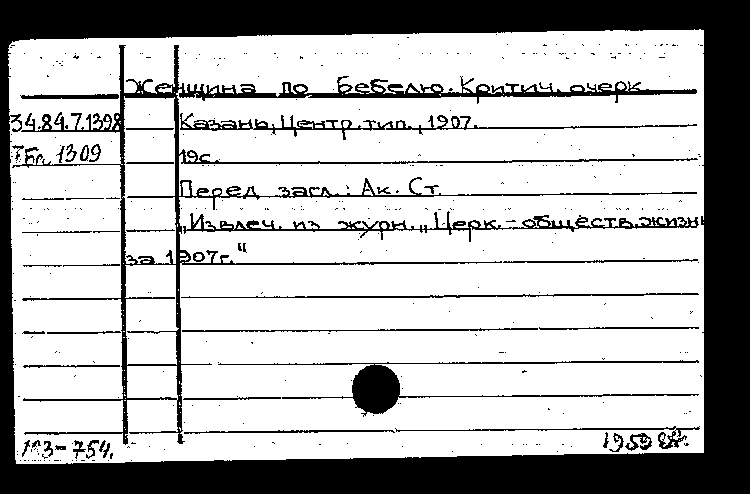 Женщина по Бебелю. Критич. очерк.
34.84.7.1398 Казань, Центр. тип., 1907.
1309 19с.
Перед загл.: Ак. Ст.
„Извлеч. из журн. „Церк.-обществ. жизнь
за 1907г.“
754. 1959